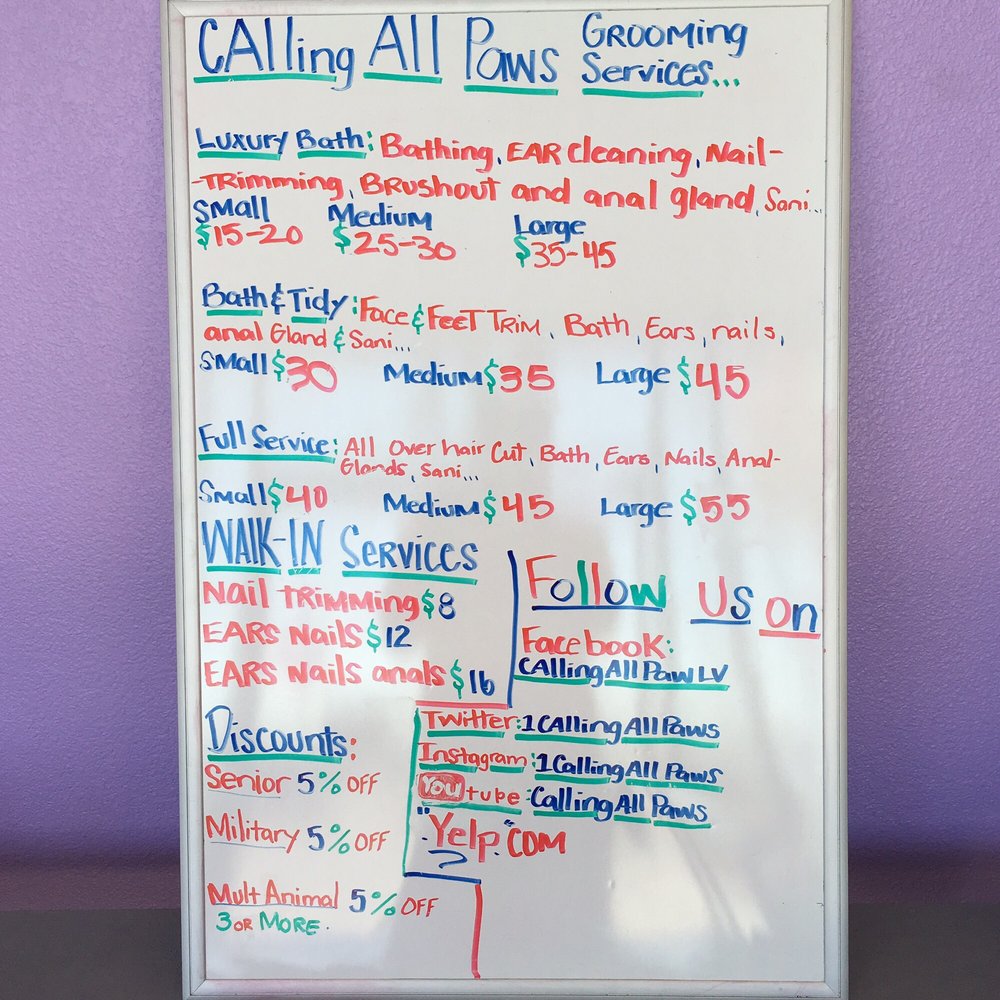 CAlling All Paws Grooming
Services...
Luxury Bath: Bathing, EAR cleaning, Nail-
-Trimming, Brushout and anal gland, Sani...
Small Medium Large
$15-20 $25-30 $35-45
Bath & Tidy: Face & Feet Trim, Bath, Ears, nails,
anal Gland & Sani...
Small $30 Medium $35 Large $45
Full Service: All Over hair Cut, Bath, Ears, Nails, Anal-
Glands, Sani...
Small $40 Medium $45 Large $55
WAlk-IN Services
Nail Trimming $8
EARS Nails $12
EARS Nails anals $16
Follow Us on
Facebook:
CAlling All Paw LV
Twitter: 1CAlling All Paws
Instagram: 1Calling All Paws
YouTube: Calling All Paws
"Yelp".com
Discounts:
Senior 5% OFF
Military 5% OFF
Mult Animal 5% OFF
3 or More.